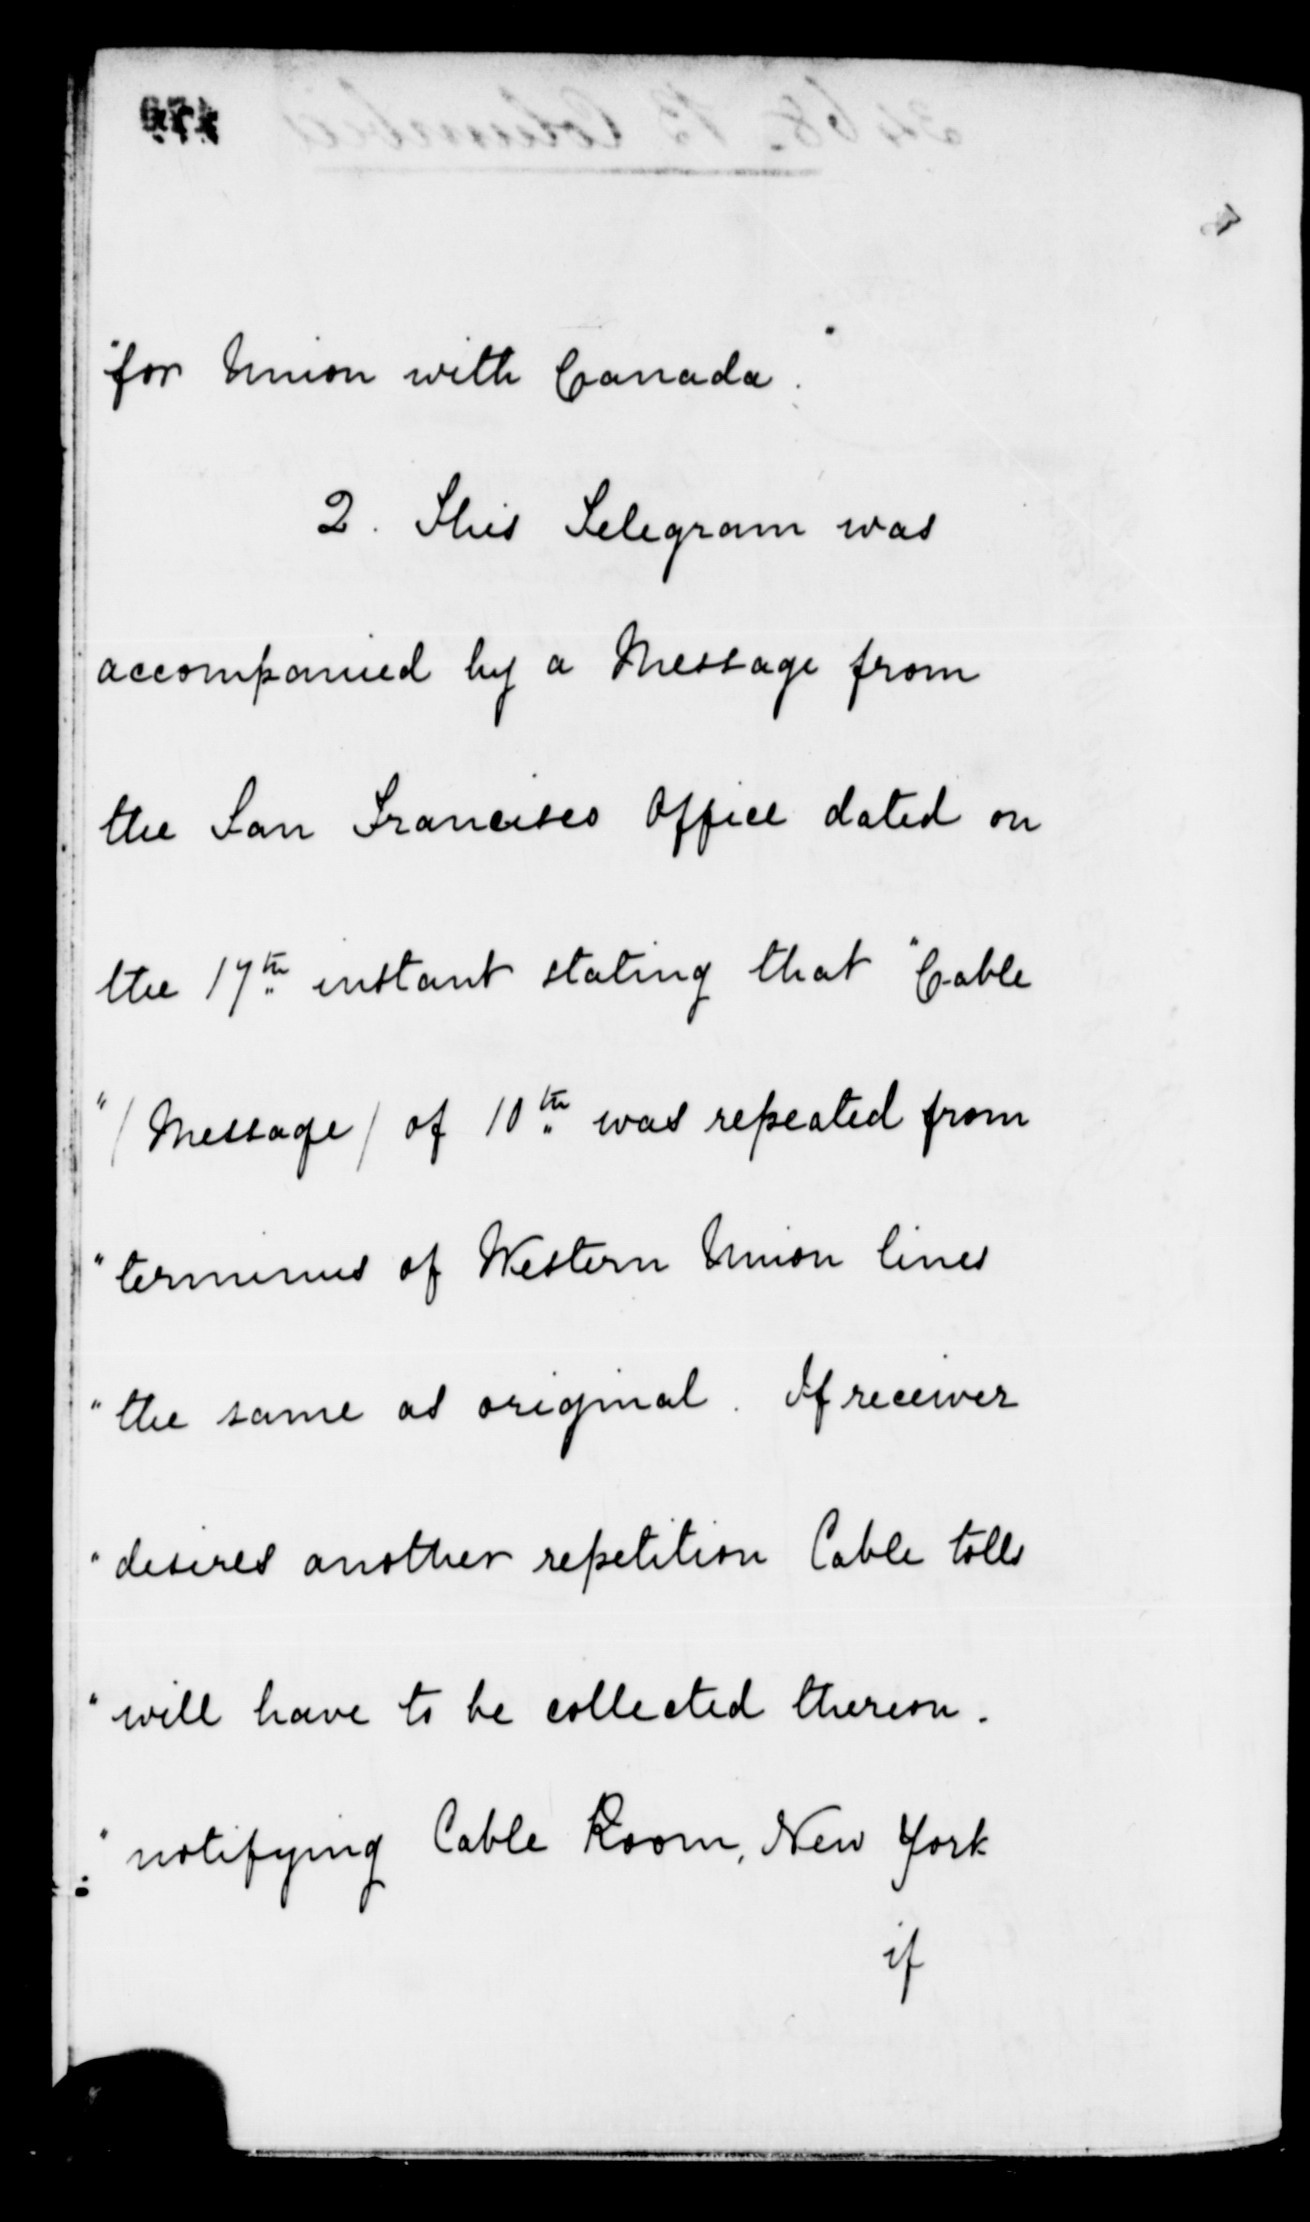 "for Union with Canada."
2. This Telegram was
accompanied by a Message from
the San Francisco Office dated on
the 17th instant stating that "Cable
"/Message/ of 10th was repeated from
"terminus of Western Union lines
"the same as original. If receiver
"desires another repetition Cable tolls
"will have to be collected thereon.
"notifying Cable Room, New York
if